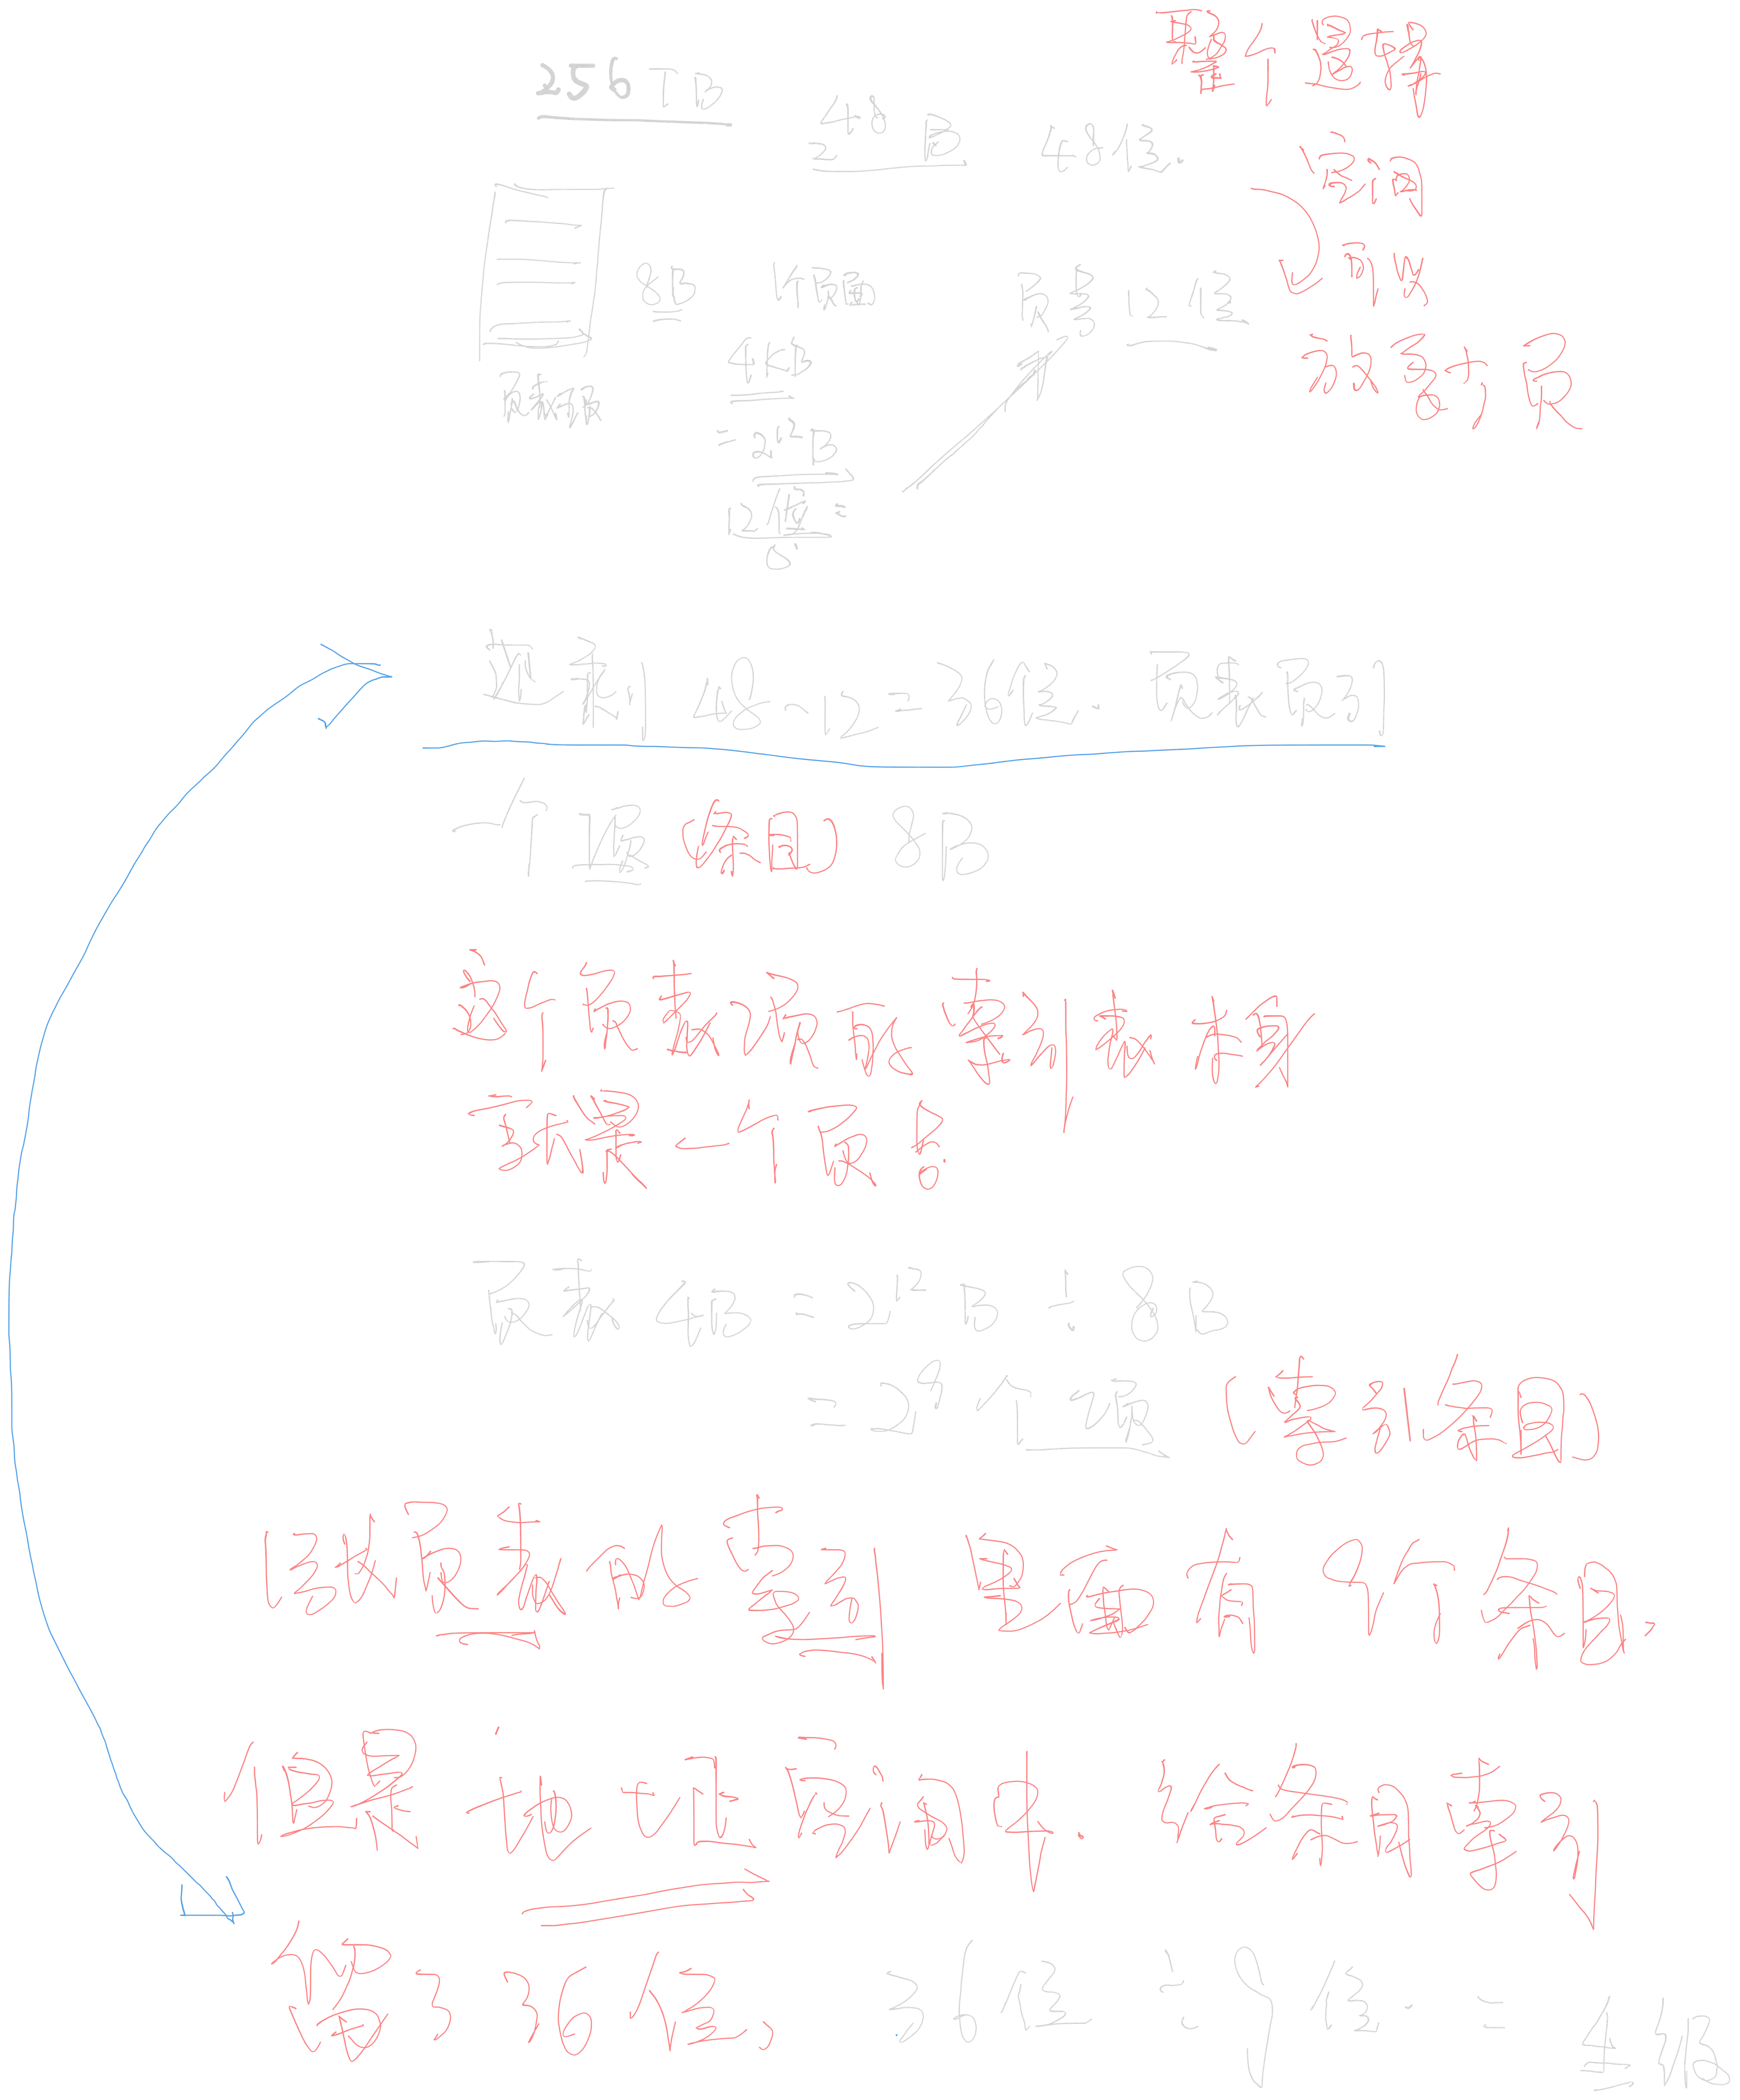 256TB
整个逻辑
2^48 B
48位.
空间
可以
放多少页
8B
1个页面
4KB
=2^12 B
12位
页号 12位
页表项
索引 48-12=36位. 页表索引
一个项(条目) 8B
这个页表项的索引表格
页表 4B =2^12 B ÷ 8B
=2^9 个项 (索引条目)
页表的索引 里面有 9个条目.
但是 地址空间中. 给条目索引
留了 36位, 36位 ÷ 9位 = 4级